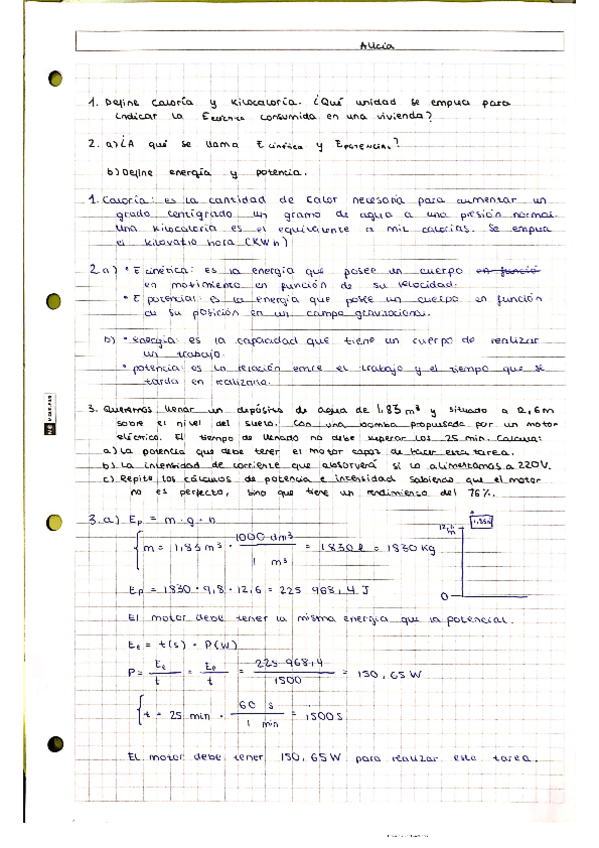 Alicia
1. Define caloría y kilocaloría. ¿Qué unidad se emplea para
indicar la Eeléctrica consumida en una vivienda?
2. a) ¿A qué se llama E cinética y EPOTENCIAL?
b) Define energía y potencia.
1. Caloría: es la cantidad de calor necesaria para aumentar un
grado centígrado un gramo de agua a una presión normal.
Una kilocaloría es el equivalente a mil calorías. Se emplea
el kilovatio hora (KWh)
2 a) • E cinética: es la energía que posee un cuerpo en funció
en movimiento en función de su velocidad.
• E potencial: es la energía que posee un cuerpo en función
de su posición en un campo gravitacional.
b) • energía: es la capacidad que tiene un cuerpo de realizar
un trabajo.
• potencia: es la relación entre el trabajo y el tiempo que se
tarda en realizarlo.
3. Queremos llenar un depósito de agua de 1,83 m³ y situado a 2,6m
sobre el nivel del suelo. Con una bomba propulsada por un motor
eléctrico. El tiempo de llenado no debe superar los 25 min. Calcula:
a) La potencia que debe tener el motor capaz de hacer esta tarea.
b) La intensidad de corriente que absorverá si lo alimentamos a 220V.
c) Repite los cálculos de potencia e intensidad sabiendo que el motor
no es perfecto, sino que tiene un rendimiento del 76%.
3. a) Ep = m · g · h
m = 1,83 m³ · 1000 dm³ / 1 m³ = 1830 l = 1830 Kg
12,6 m
0
Ep = 1830 · 9,8 · 12,6 = 225 968,4 J
El motor debe tener la misma energía que la potencial.
Ee = t(s) · P(W)
P = Ee / t = Ep / t = 225 968,4 / 1500 = 150,65 W
t = 25 min · 60 s / 1 min = 1500 s
El motor debe tener 150,65W para realizar esta tarea.